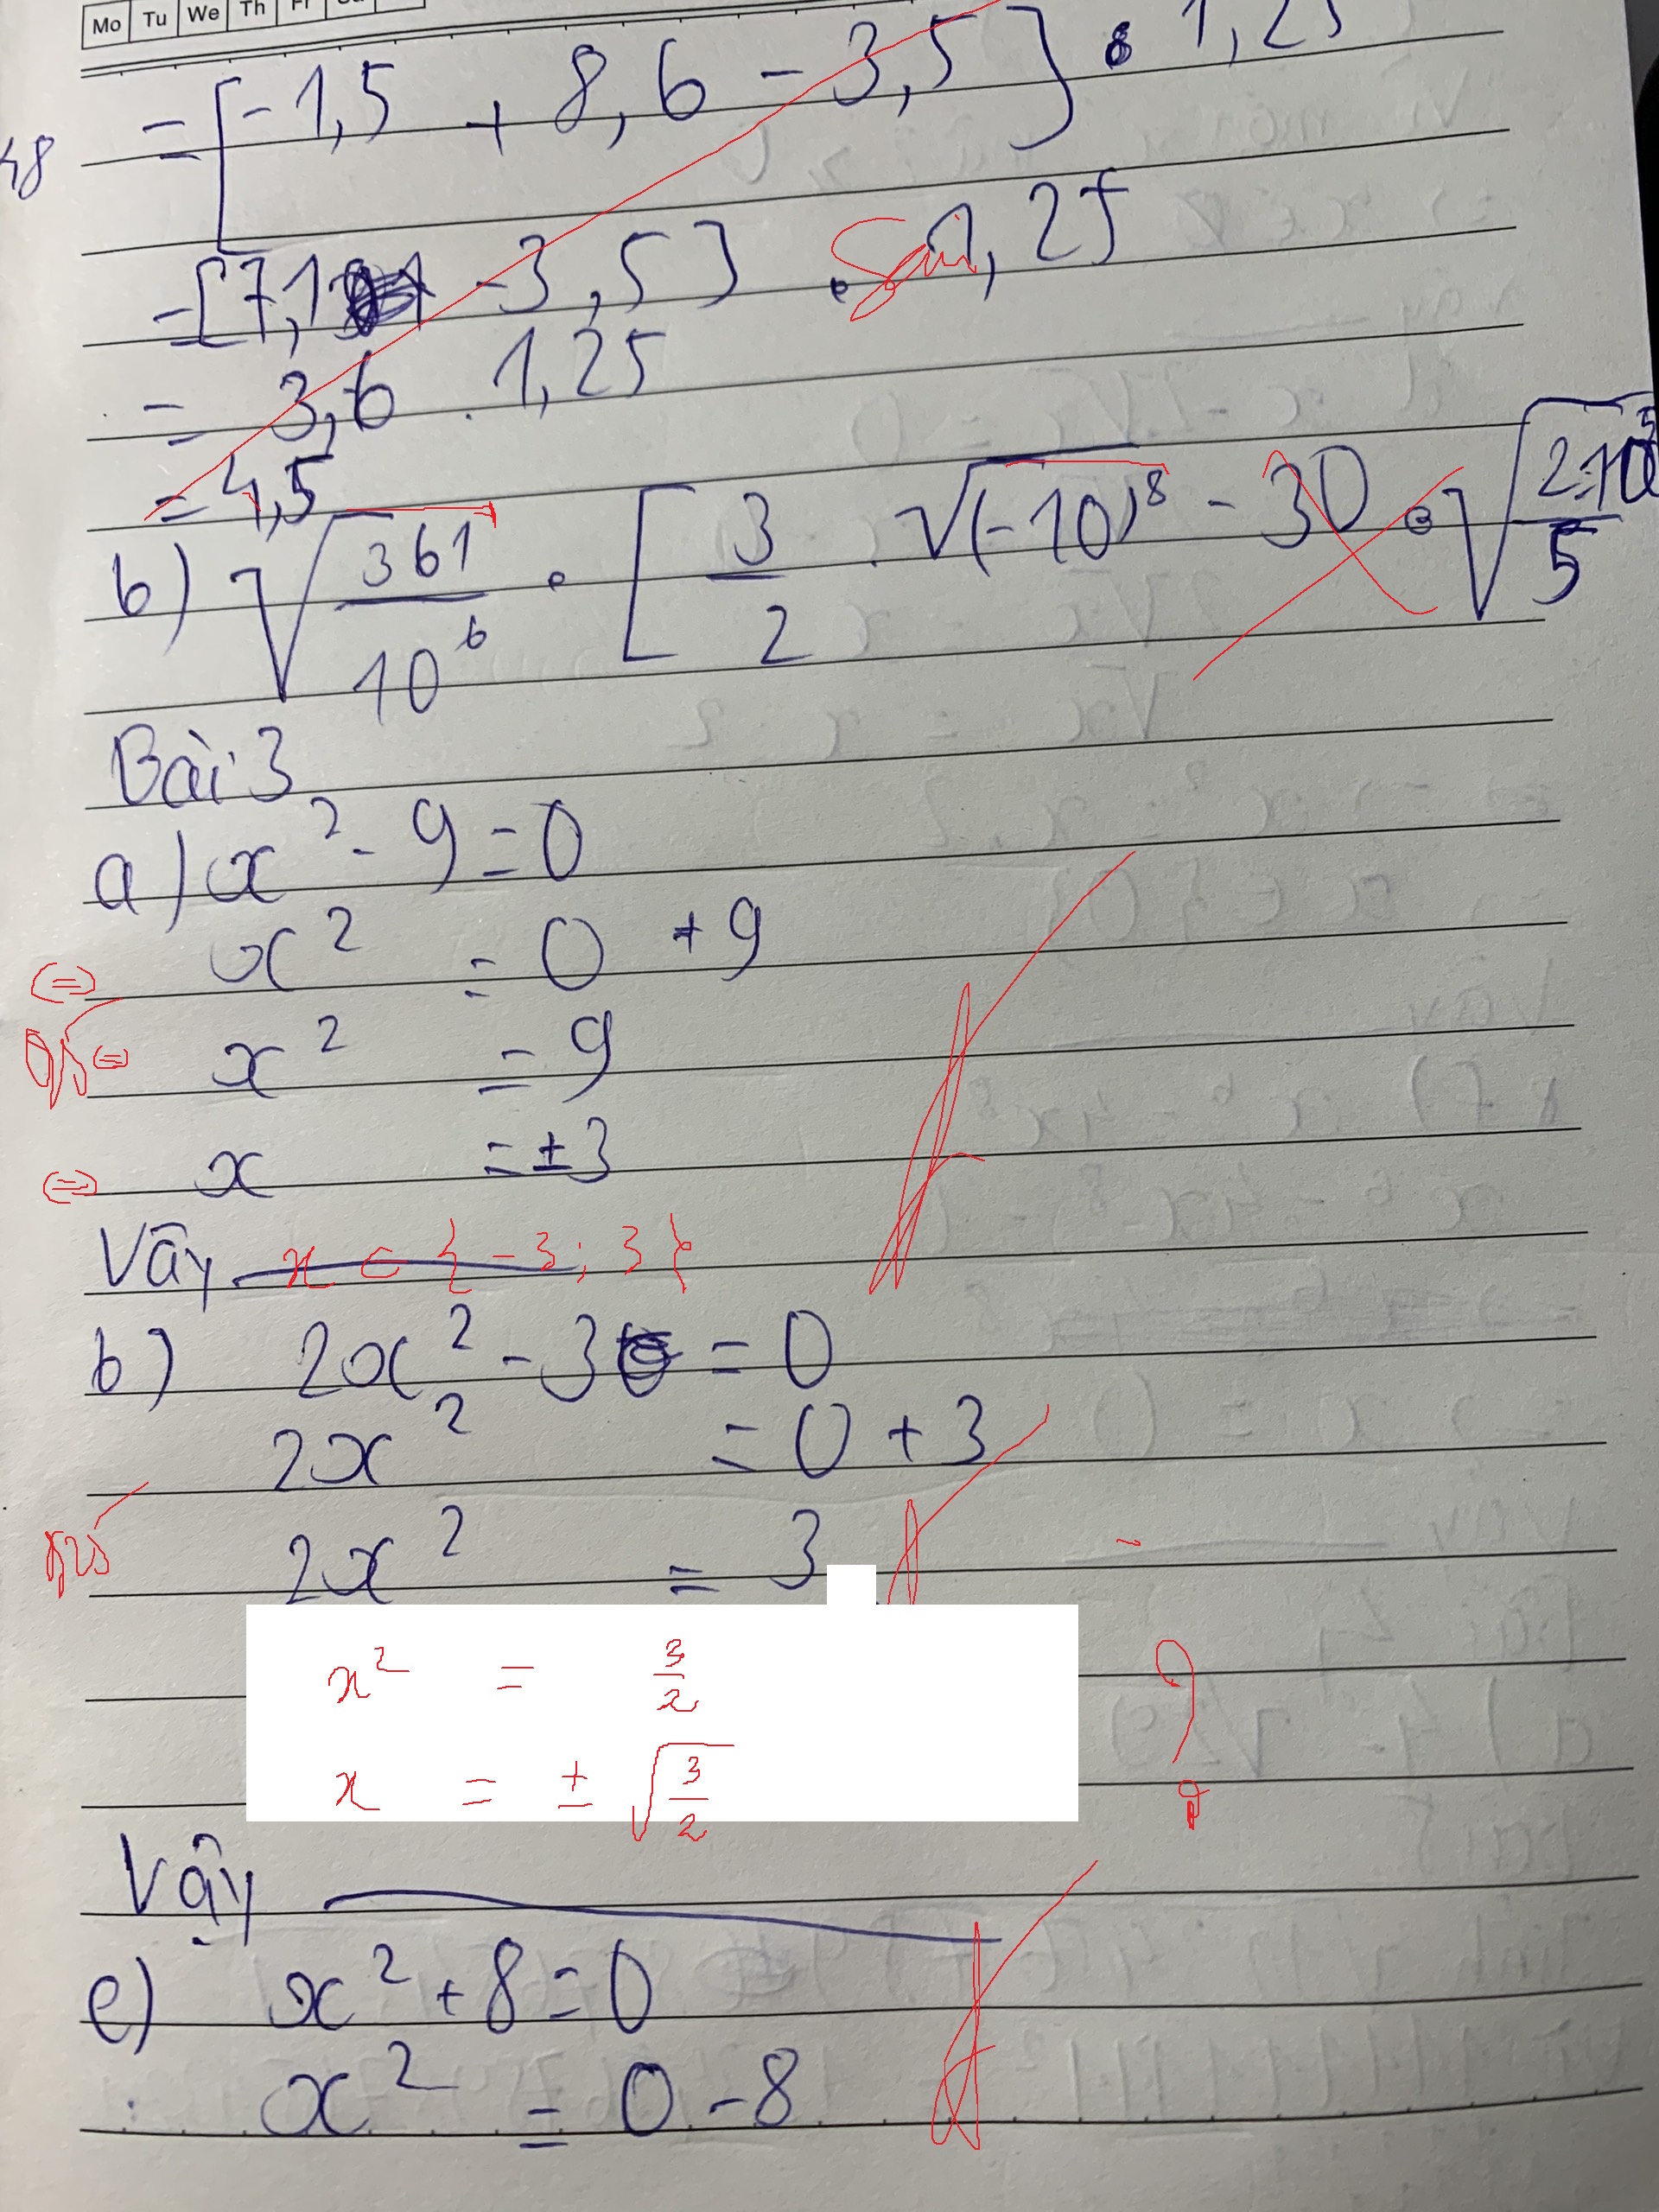 Mo Tu We Th Fr
= [-1,5 + 8,6 - 3,5] : 1,25
48
= [7,1 - 3,5] . 1,25 Sai
= 3,6 . 1,25
= 4,5
b) √(361/10^6) . [3/2 . √(-10)^8 - 30 : √(2.10^5/5)
Bài 3
a) x² - 9 = 0
(=) x² = 0 + 9
(=) x² = 9
(=) x = ±3
Vây x ∈ {-3; 3}
b) 2x² - 3 = 0
2x² = 0 + 3
2x² = 3
x² = 3/2 ?
x = ± √(3/2)
Vậy
e) x² + 8 = 0
x² = 0 - 8